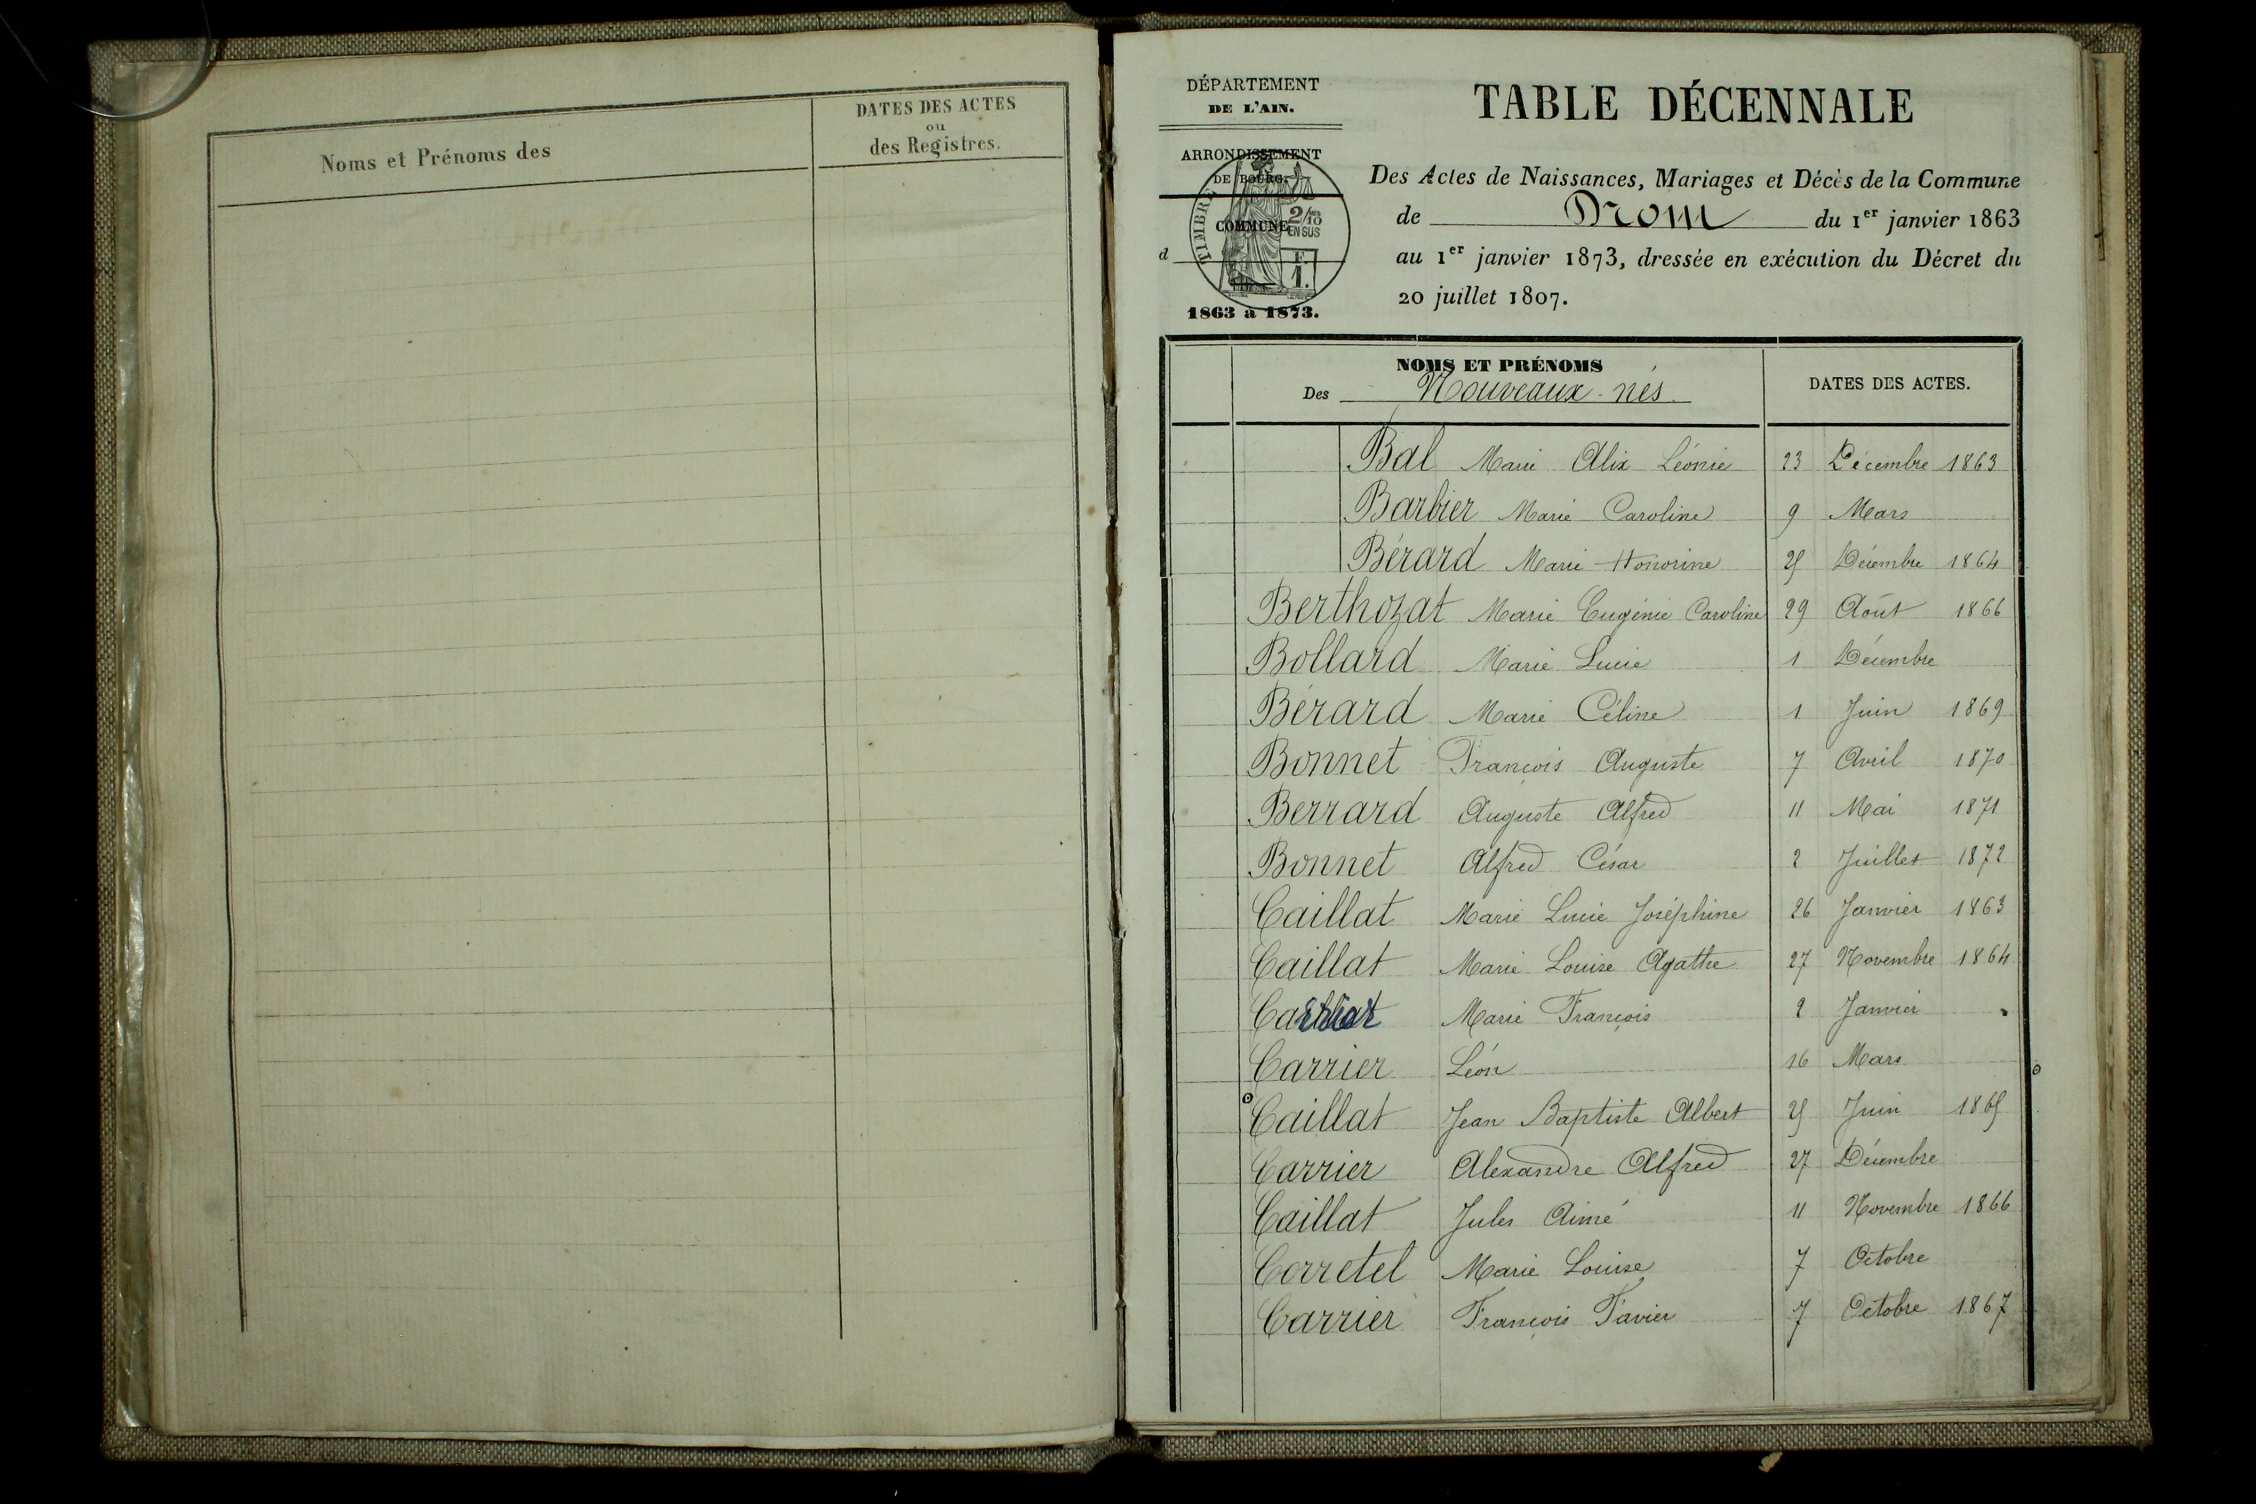 Noms et Prénoms des
DATES DES ACTES
ou
des Registres.
DÉPARTEMENT
DE L'AIN.
ARRONDISSEMENT
DE BOURG.
COMMUNE
d
TIMBRE
2/10
EN SUS
F
1.
1863 à 1873.
TABLE DÉCENNALE
Des Actes de Naissances, Mariages et Décès de la Commune
de Drom du 1er janvier 1863
au 1er janvier 1873, dressée en exécution du Décret du
20 juillet 1807.
NOMS ET PRÉNOMS
Des Nouveaux-nés
DATES DES ACTES.
Bal Marie Alix Léonie 23 Décembre 1863
Barbier Marie Caroline 9 Mars
Bérard Marie Honorine 25 Décembre 1864
Berthozat Marie Eugénie Caroline 29 Août 1866
Bollard Marie Lucie 1 Décembre
Bérard Marie Céline 1 Juin 1869
Bonnet François Auguste 7 Avril 1870
Berrard Auguste Alfred 11 Mai 1871
Bonnet Alfred César 2 Juillet 1872
Caillat Marie Lucie Joséphine 26 Janvier 1863
Caillat Marie Louise Agathe 27 Novembre 1864
Marie François 2 Janvier
Carrier Léon 16 Mars
Caillat Jean Baptiste Albert 25 Juin 1865
Carrier Alexandre Alfred 27 Décembre
Caillat Jules Aimé 11 Novembre 1866
Corretel Marie Louise 7 Octobre
Carrier François Favier 7 Octobre 1867